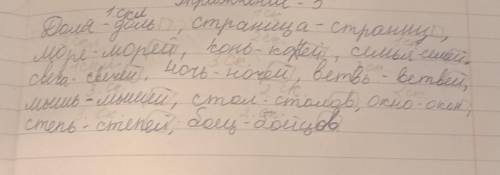 Упражнение - 5
1 скл
Доля-доль, страница-страниц,
море-морей, конь-коней, семья-семей,
свеча-свечей, ночь-ночей, ветвь-ветвей,
мышь-мышей, стол-столов, окно-окон,
степь-степей, боец-бойцов